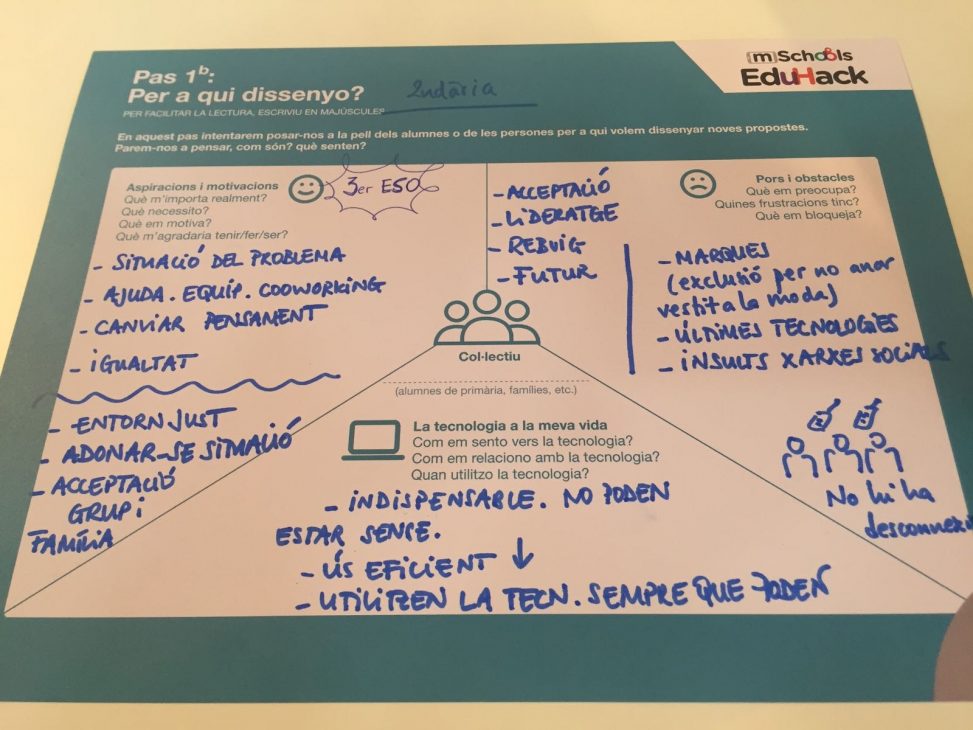 Pas 1b:
Per a qui dissenyo?
2ndària
PER FACILITAR LA LECTURA, ESCRIVIU EN MAJÚSCULES
mSchools
EduHack
En aquest pas intentarem posar-nos a la pell dels alumnes o de les persones per a qui volem dissenyar noves propostes.
Parem-nos a pensar, com són? què senten?
Aspiracions i motivacions
Què m'importa realment?
Què necessito?
Què em motiva?
Què m'agradaria tenir/fer/ser?
3er ESO
- SITUACIÓ DEL PROBLEMA
- AJUDA. EQUIP. COOWORKING
- CANVIAR PENSAMENT
- IGUALTAT
- ENTORN JUST
- ADONAR-SE SITUACIÓ
- ACCEPTACIÓ
GRUP i
FAMÍLIA
- ACCEPTACIÓ
- LIDERATGE
- REBUIG
- FUTUR
Pors i obstacles
Què em preocupa?
Quines frustracions tinc?
Què em bloqueja?
- MARQUES
(exclusió per no anar
vestit a la moda)
- ÚLTIMES TECNOLOGIES
- INSULTS XARXES SOCIALS
No hi ha
desconnexi
Col·lectiu
(alumnes de primària, famílies, etc.)
La tecnologia a la meva vida
Com em sento vers la tecnologia?
Com em relaciono amb la tecnologia?
Quan utilitzo la tecnologia?
- INDISPENSABLE. NO PODEN
ESTAR SENSE.
- ÚS EFICIENT ↓
- UTILITZEN LA TECN. SEMPRE QUE PODEN